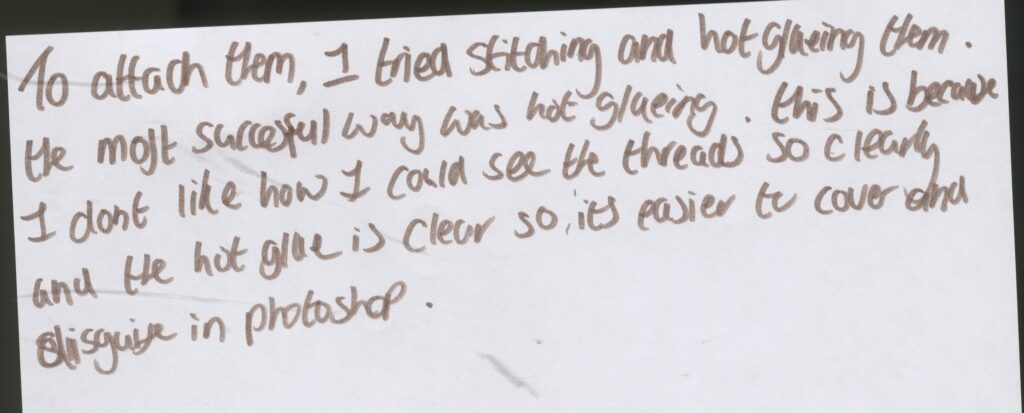 To attach them, I tried stitching and hot glueing them.
the most succesful way was hot glueing. this is because
I dont like how I could see the threads so clearly
and the hot glue is clear so, its easier to cover and
disguise in photoshop.